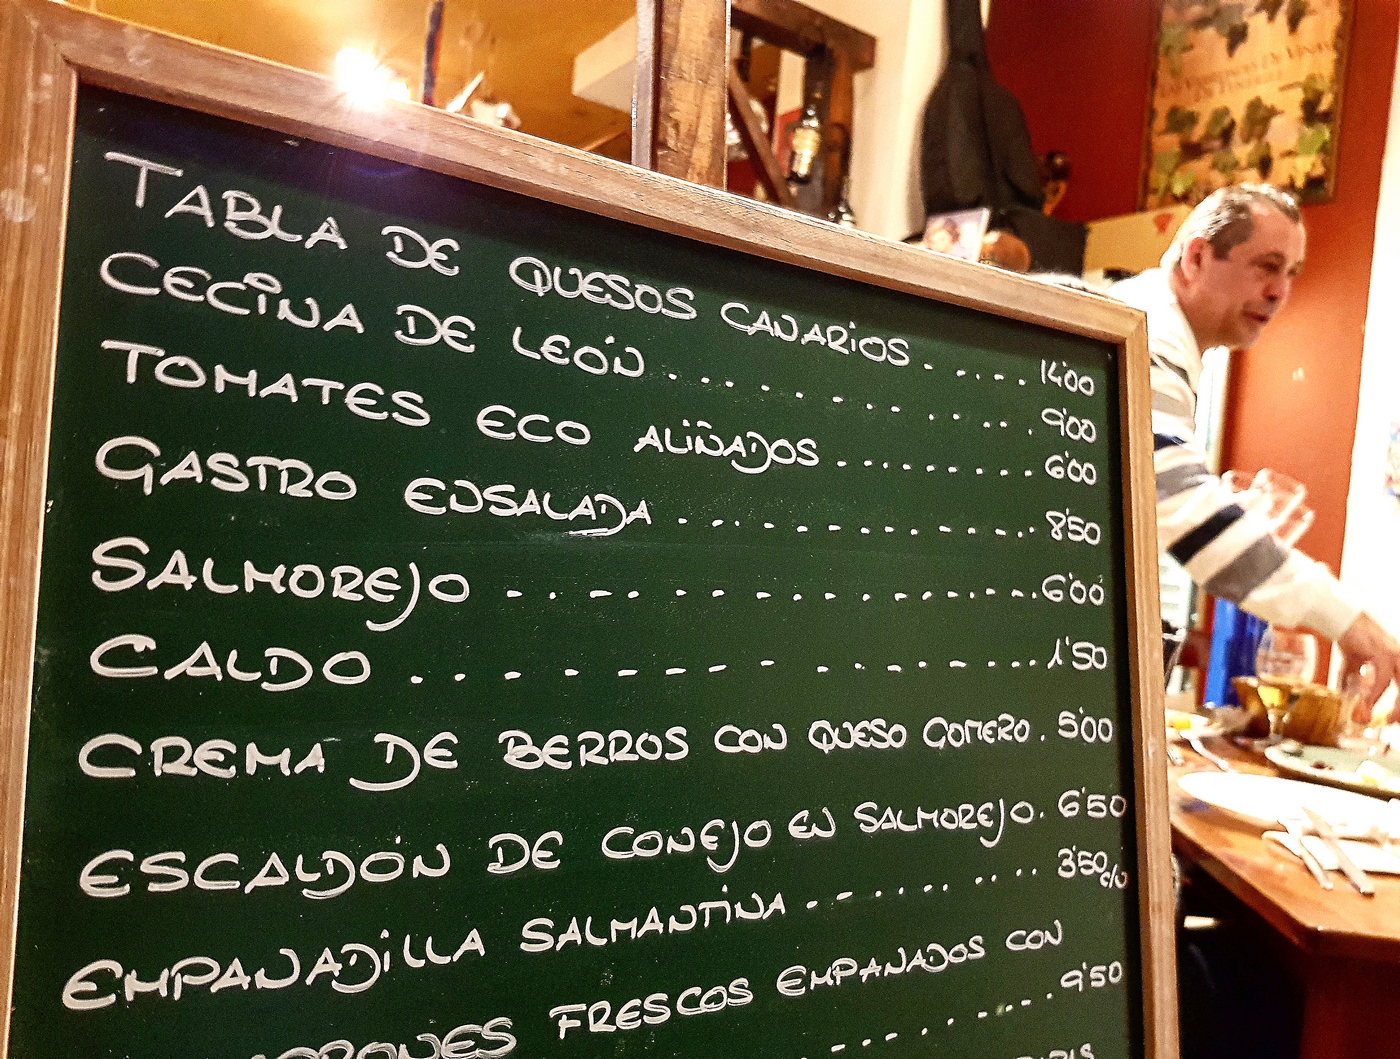 TABLA DE QUESOS CANARIOS . . . . . 14'00
CECINA DE LEÓN . . . . . . . . . . . . 9'00
TOMATES ECO ALIÑADOS . . . . . . . . . 6'00
GASTRO ENSALADA . . . . . . . . . . . . . 8'50
SALMOREJO . . . . . . . . . . . . . . . . 6'00
CALDO . . . . . . . . . . . . . . . 1'50
CREMA DE BERROS CON QUESO GOMERO . 5'00
ESCALDÓN DE CONEJO EN SALMOREJO . 6'50
EMPANADILLA SALMANTINA . . . . . . . . . . 3'50 c/u
FRESCOS EMPANADOS CON
. . . . . . . . 9'50